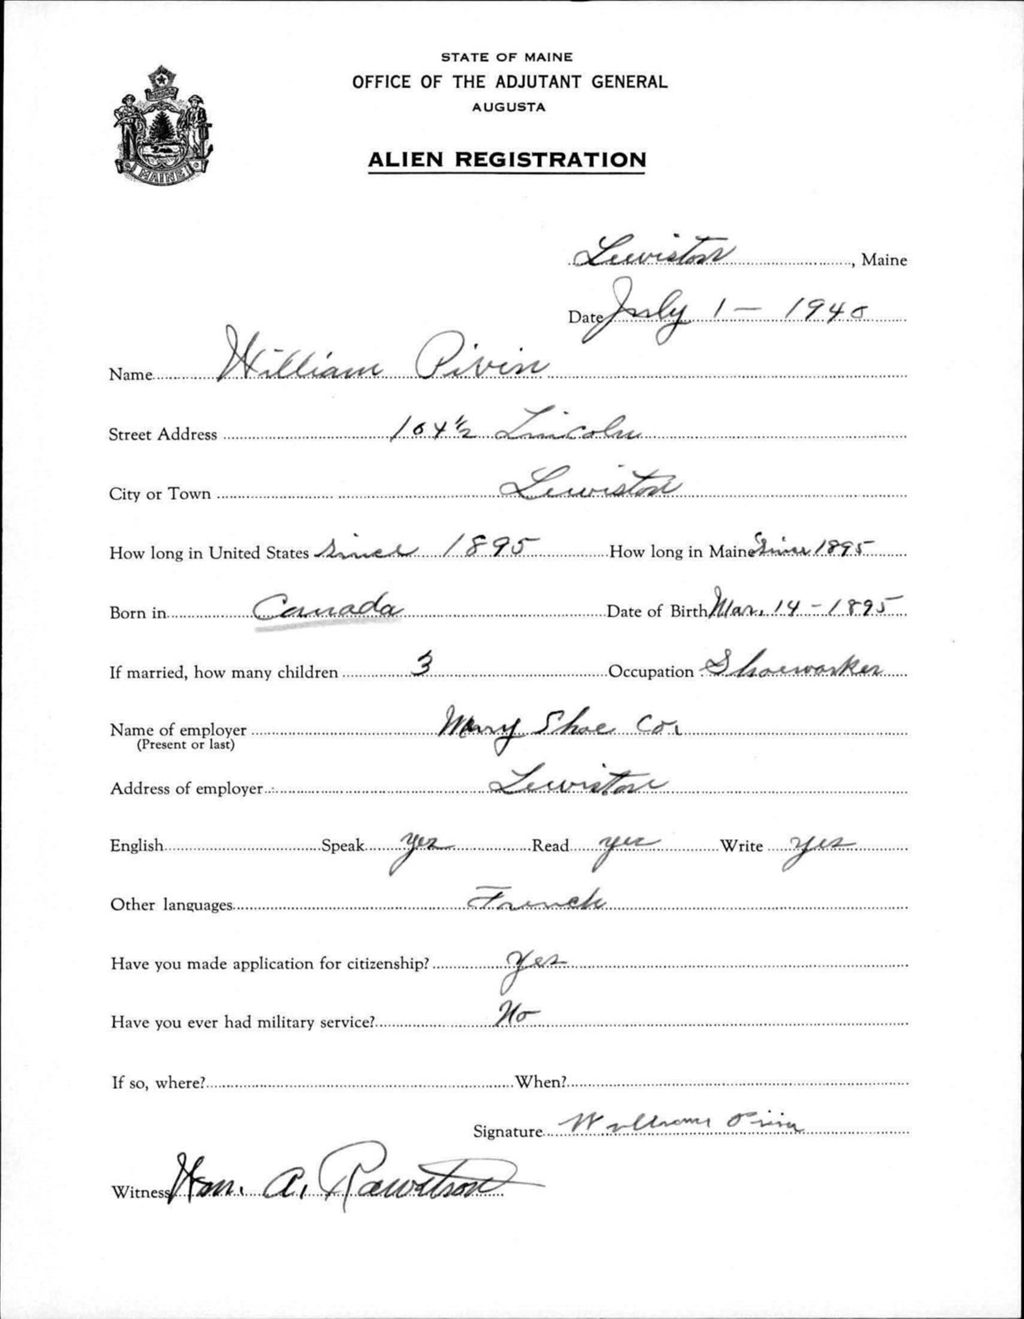 STATE OF MAINE
OFFICE OF THE ADJUTANT GENERAL
AUGUSTA
ALIEN REGISTRATION
MAINE
Lewiston, Maine
Date July 1 - 1940
Name William Pivin
Street Address 104½ Lincoln
City or Town Lewiston
How long in United States Since 1895 How long in Maine Since 1895
Born in Canada Date of Birth Mar. 14 - 1895
If married, how many children 3 Occupation Shoeworker
Name of employer Shoe Co.
(Present or last)
Address of employer Lewiston
English Speak yes Read yes Write yes
Other languages French
Have you made application for citizenship? Yes
Have you ever had military service? No
If so, where? When?
Signature William Pivin
Witness Wm. A. Rawstron